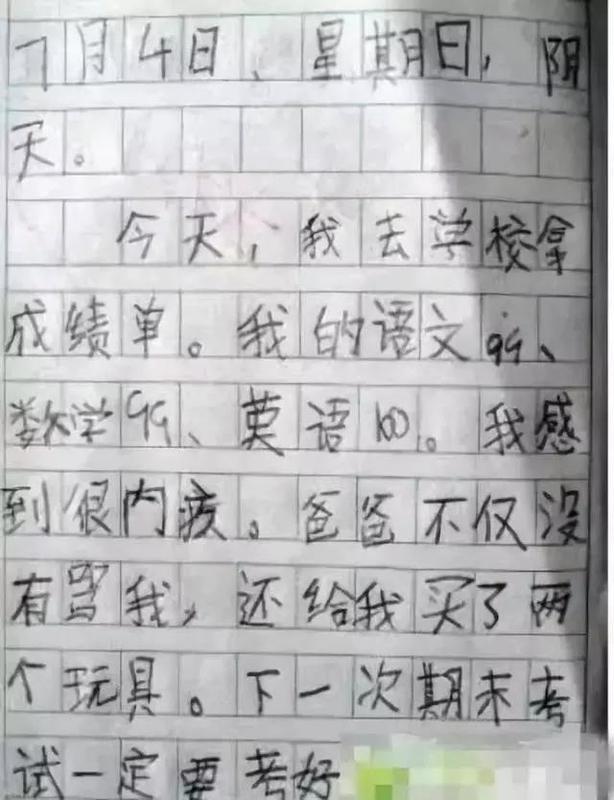 7月4日、星期日，阴
天。
今天，我去学校拿
成绩单。我的语文99、
数学99、英语100。我感
到很内疚。爸爸不仅没
有骂我，还给我买了两
个玩具。下一次期末考
试一定要考好